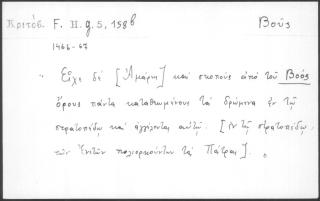 Κριτόβ. F. H. g. 5, 158b Βοός
1466-67
" Εἶχε δὲ [Ἀμάρης] καὶ σκοποὺς ἀπὸ τοῦ Βοός
ὄρους πάντα καταθεωμένους τὰ δρώμενα ἐν τῷ
στρατοπέδῳ καὶ ἀγγέλλοντας αὐτῷ. [ἐν τῷ στρατοπέδῳ,
τῶν Ἐνετῶν πολιορκούντων τὰς Πάτρας].